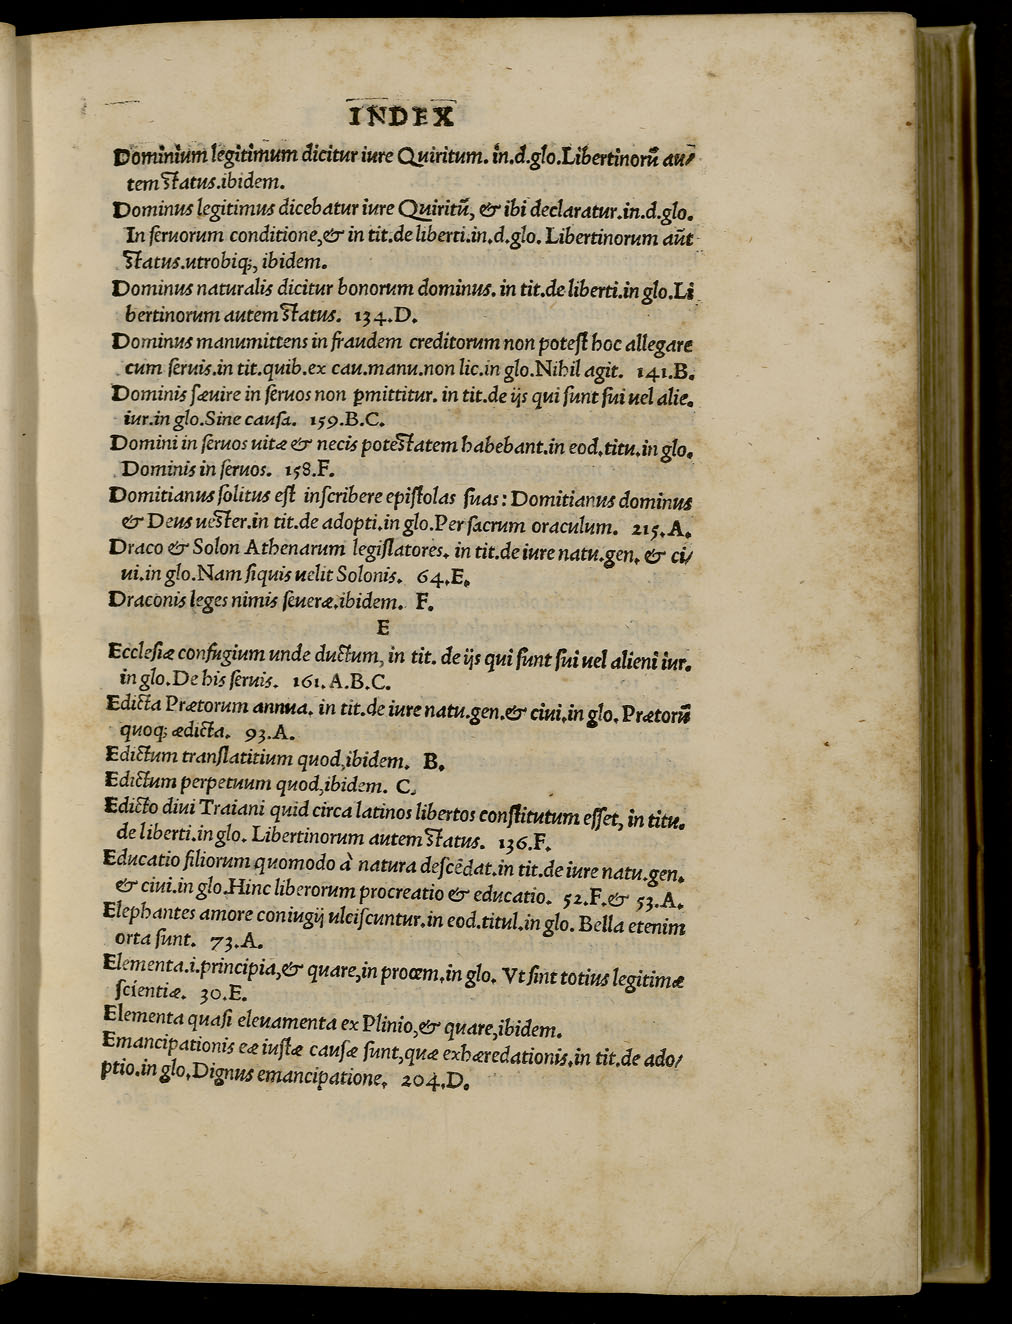 INDEX
Dominium legitimum dicitur iure Quiritum. in.d.glo.Libertinorũ au/
tem status.ibidem.
Dominus legitimus dicebatur iure Quiritũ, & ibi declaratur.in.d.glo.
In ſeruorum conditione,& in tit.de liberti.in.d.glo. Libertinorum aũt
status.utrobiq;, ibidem.
Dominus naturalis dicitur bonorum dominus. in tit.de liberti.in glo.Li
bertinorum autem status. 134.D.
Dominus manumittens in fraudem creditorum non poteſt hoc allegare
cum ſeruis.in tit.quib.ex cau.manu.non lic.in glo.Nihil agit. 141.B.
Dominis ſæuire in ſeruos non ꝑmittitur. in tit.de ijs qui ſunt ſui uel alie.
iur.in glo.Sine cauſa. 159.B.C.
Domini in ſeruos uitæ & necis potestatem habebant.in eod.titu.in glo.
Dominis in ſeruos. 158.F.
Domitianus ſolitus eſt inſcribere epiſtolas ſuas: Domitianus dominus
& Deus uester.in tit.de adopti.in glo.Per ſacrum oraculum. 215.A.
Draco & Solon Athenarum legiſlatores. in tit.de iure natu.gen. & ci/
ui.in glo.Nam ſiquis uelit Solonis. 64.E.
Draconis leges nimis ſeueræ.ibidem. F.
E
Eccleſiæ confugium unde ductum, in tit. de ijs qui ſunt ſui uel alieni iur.
in glo.De his ſeruis. 161.A.B.C.
Edicta Prætorum annua. in tit.de iure natu.gen.& ciui.in glo.Prætorũ
quoq; ædicta. 93.A.
Edictum tranſlatitium quod,ibidem. B.
Edictum perpetuum quod,ibidem. C.
Edicto diui Traiani quid circa latinos libertos conſtitutum eſſet, in titu.
de liberti.in glo. Libertinorum autem status. 136.F.
Educatio filiorum quomodo à natura deſcẽdat.in tit.de iure natu.gen.
& ciui.in glo.Hinc liberorum procreatio & educatio. 52.F.& 53.A.
Elephantes amore coniugij ulciſcuntur.in eod.titul.in glo. Bella etenim
orta ſunt. 73.A.
Elementa.i.principia,& quare,in proœm.in glo. Vt ſint totius legitimæ
ſcientiæ. 30.E.
Elementa quaſi eleuamenta ex Plinio,& quare,ibidem.
Emancipationis eæ iuſtæ cauſæ ſunt,quæ exhæredationis.in tit.de ado/
ptio.in glo.Dignus emancipatione. 204.D.